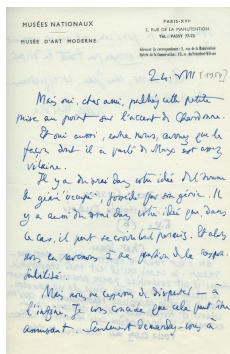 MUSÉES NATIONAUX
MUSÉE D'ART MODERNE
PARIS-XVIe
2, RUE DE LA MANUTENTION
Tél. : PASSY 77-75
24. VIII [1954]
Mais oui, cher ami, publiez cette petite
mise au point sur l'accent de Chardonne.
Et oui aussi, entre nous, avouez que la
façon dont il a parlé de est assez
vilaine.
Il y a du vrai dans votre idée de l'homme
de génie par son génie. Il
y a aussi du vrai dans votre idée que dans
ce cas, il peut se croire tout permis. Et alors
nous en revenons à la question de la respon-
sabilité.
Mais nous ne cesserons de disputer — à
l'infini. Je vous concède que cela peut être
amusant. Seulement demandez-vous à